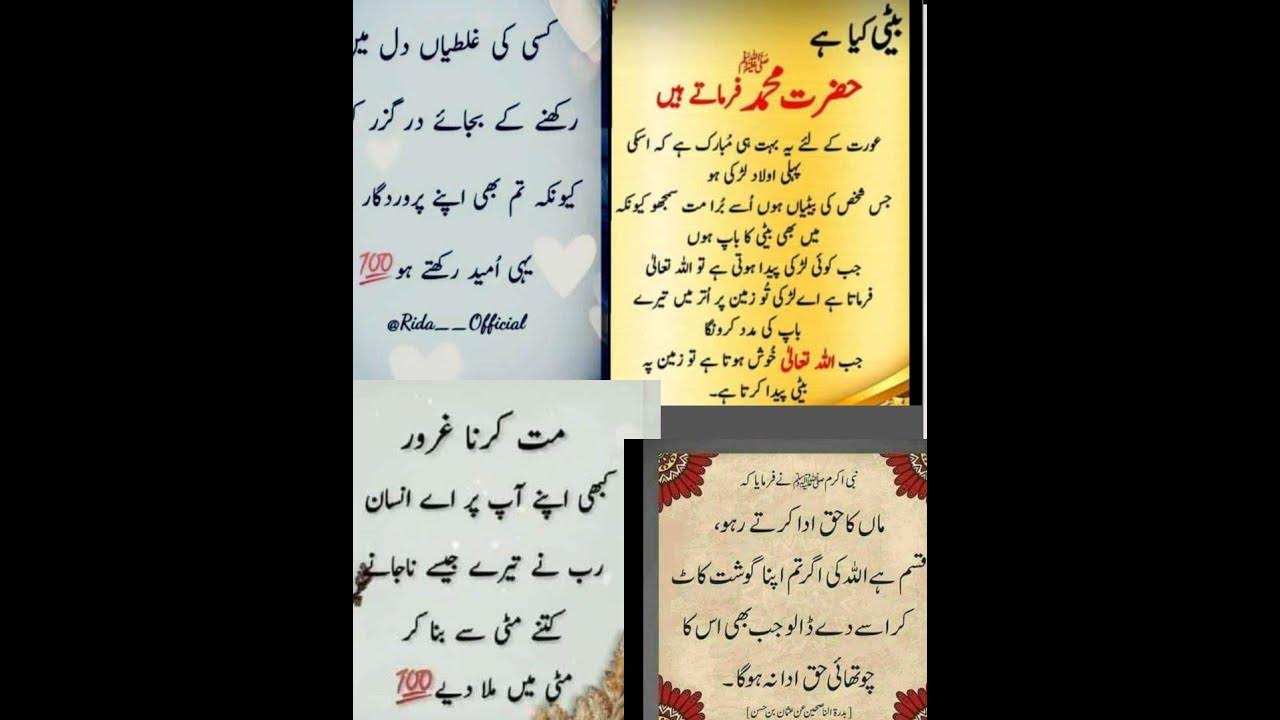 کسی کی غلطیاں دل میں
رکھنے کے بجائے درگزر
کیونکہ تم بھی اپنے پروردگار
یہی اُمید رکھتے ہو💯
@Rida__Official
بیٹی کیا ہے
حضرت محمد ﷺ فرماتے ہیں
عورت کے لئے یہ بہت ہی مُبارک ہے کہ اسکی
پہلی اولاد لڑکی ہو
جس شخص کی بیٹیاں ہوں اُسے بُرا مت سمجھو کیونکہ
میں بھی بیٹی کا باپ ہوں
جب کوئی لڑکی پیدا ہوتی ہے تو اللہ تعالیٰ
فرماتا ہے اے لڑکی تُو زمین پر اُتر میں تیرے
باپ کی مدد کرونگا
جب اللہ تعالیٰ خُوش ہوتا ہے تو زمین پہ
بیٹی پیدا کرتا ہے۔
مت کرنا غرور
کبھی اپنے آپ پر اے انسان
رب نے تیرے جیسے ناجانے
کتنے مٹی سے بنا کر
مٹی میں ملا دیے💯
نبی اکرم ﷺ نے فرمایا کہ
ماں کا حق ادا کرتے رہو،
قسم ہے اللہ کی اگر تم اپنا گوشت کاٹ
کر اسے دے ڈالو جب بھی اس کا
چوتھائی حق ادا نہ ہوگا۔
[بدرۃ الناصحین عن عثمان بن حسن]